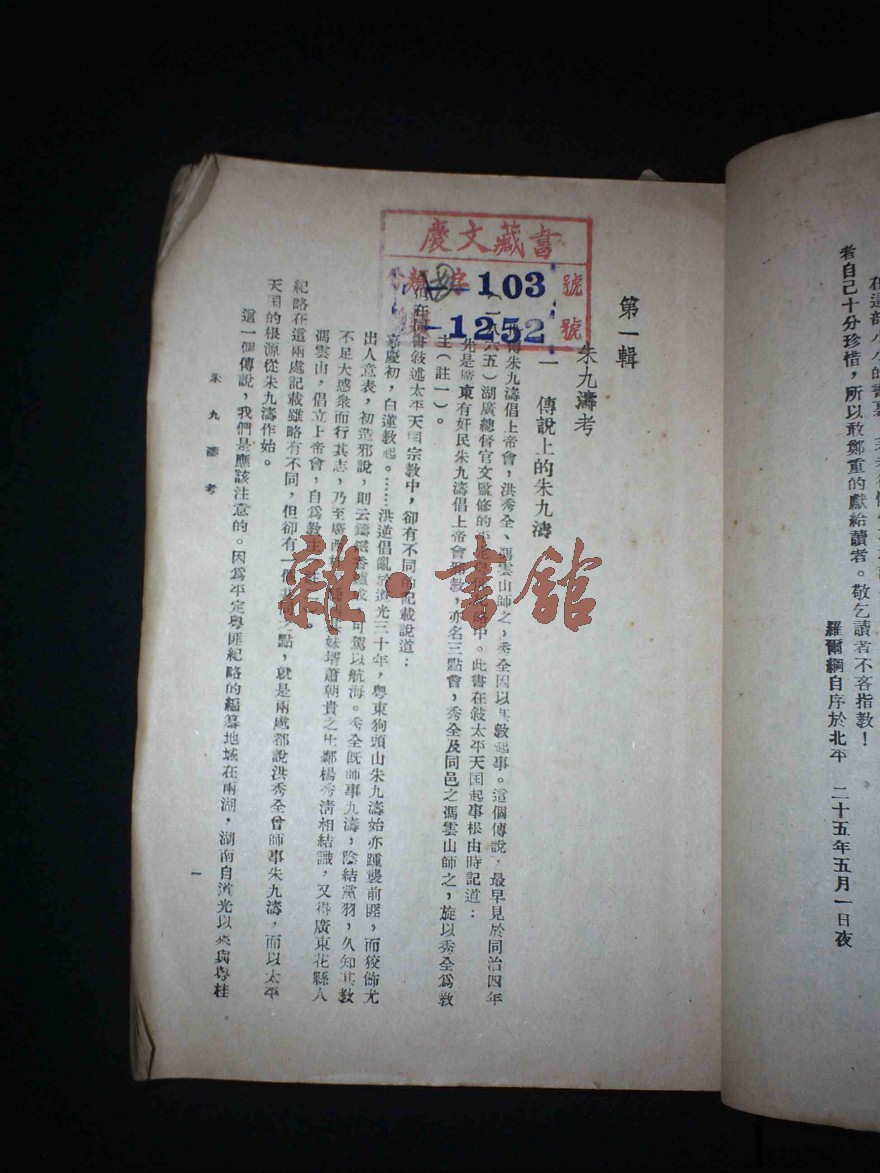 者自己十分珍惜，所以敢鄭重的獻給讀者。敬乞讀者不吝指教！
羅爾綱自序於北平　二十五年五月一日夜
慶文藏書
103 號
1252 號
第一輯
朱九濤考
一　傳說上的朱九濤
傳朱九濤倡上帝會，洪秀全、馮雲山師之，秀全因以其教起事。這個傳說，最早見於同治四年
（一八六五）湖廣總督官文監修的平定粵匪紀略中。此書在敍太平天国起事根由時記道：
先是廣東有奸民朱九濤倡上帝會斂教，亦名三點會，秀全及同邑之馮雲山師之，旋以秀全爲教
主（註一）。
在同書敍述太平天国宗教中，卻有不同的記載說道：
嘉慶初，白蓮教起。……洪逆倡亂於道光三十年，粵東狗頭山朱九濤始亦踵襲前匪，而狡飾尤
出人意表，初造邪說，則云鑄鐵香爐成，可駕以航海。秀全既師事九濤，陰結黨羽，久知其教
不足大惑衆而行其志，乃至廣西妹壻蕭朝貴之鄰楊秀清相結識，又得廣東花縣人
馮雲山，倡立上帝會，自爲教主
紀略在這兩處記載雖略有不同，但卻有一個共同之點，就是兩處都說洪秀全曾師事朱九濤，而以太平
天国的根源從朱九濤作始。
這一個傳說，我們是應該注意的。因爲平定粵匪紀略的編纂地域在兩湖，湖南自道光以來與粵桂
朱九濤考
一
雜·書館